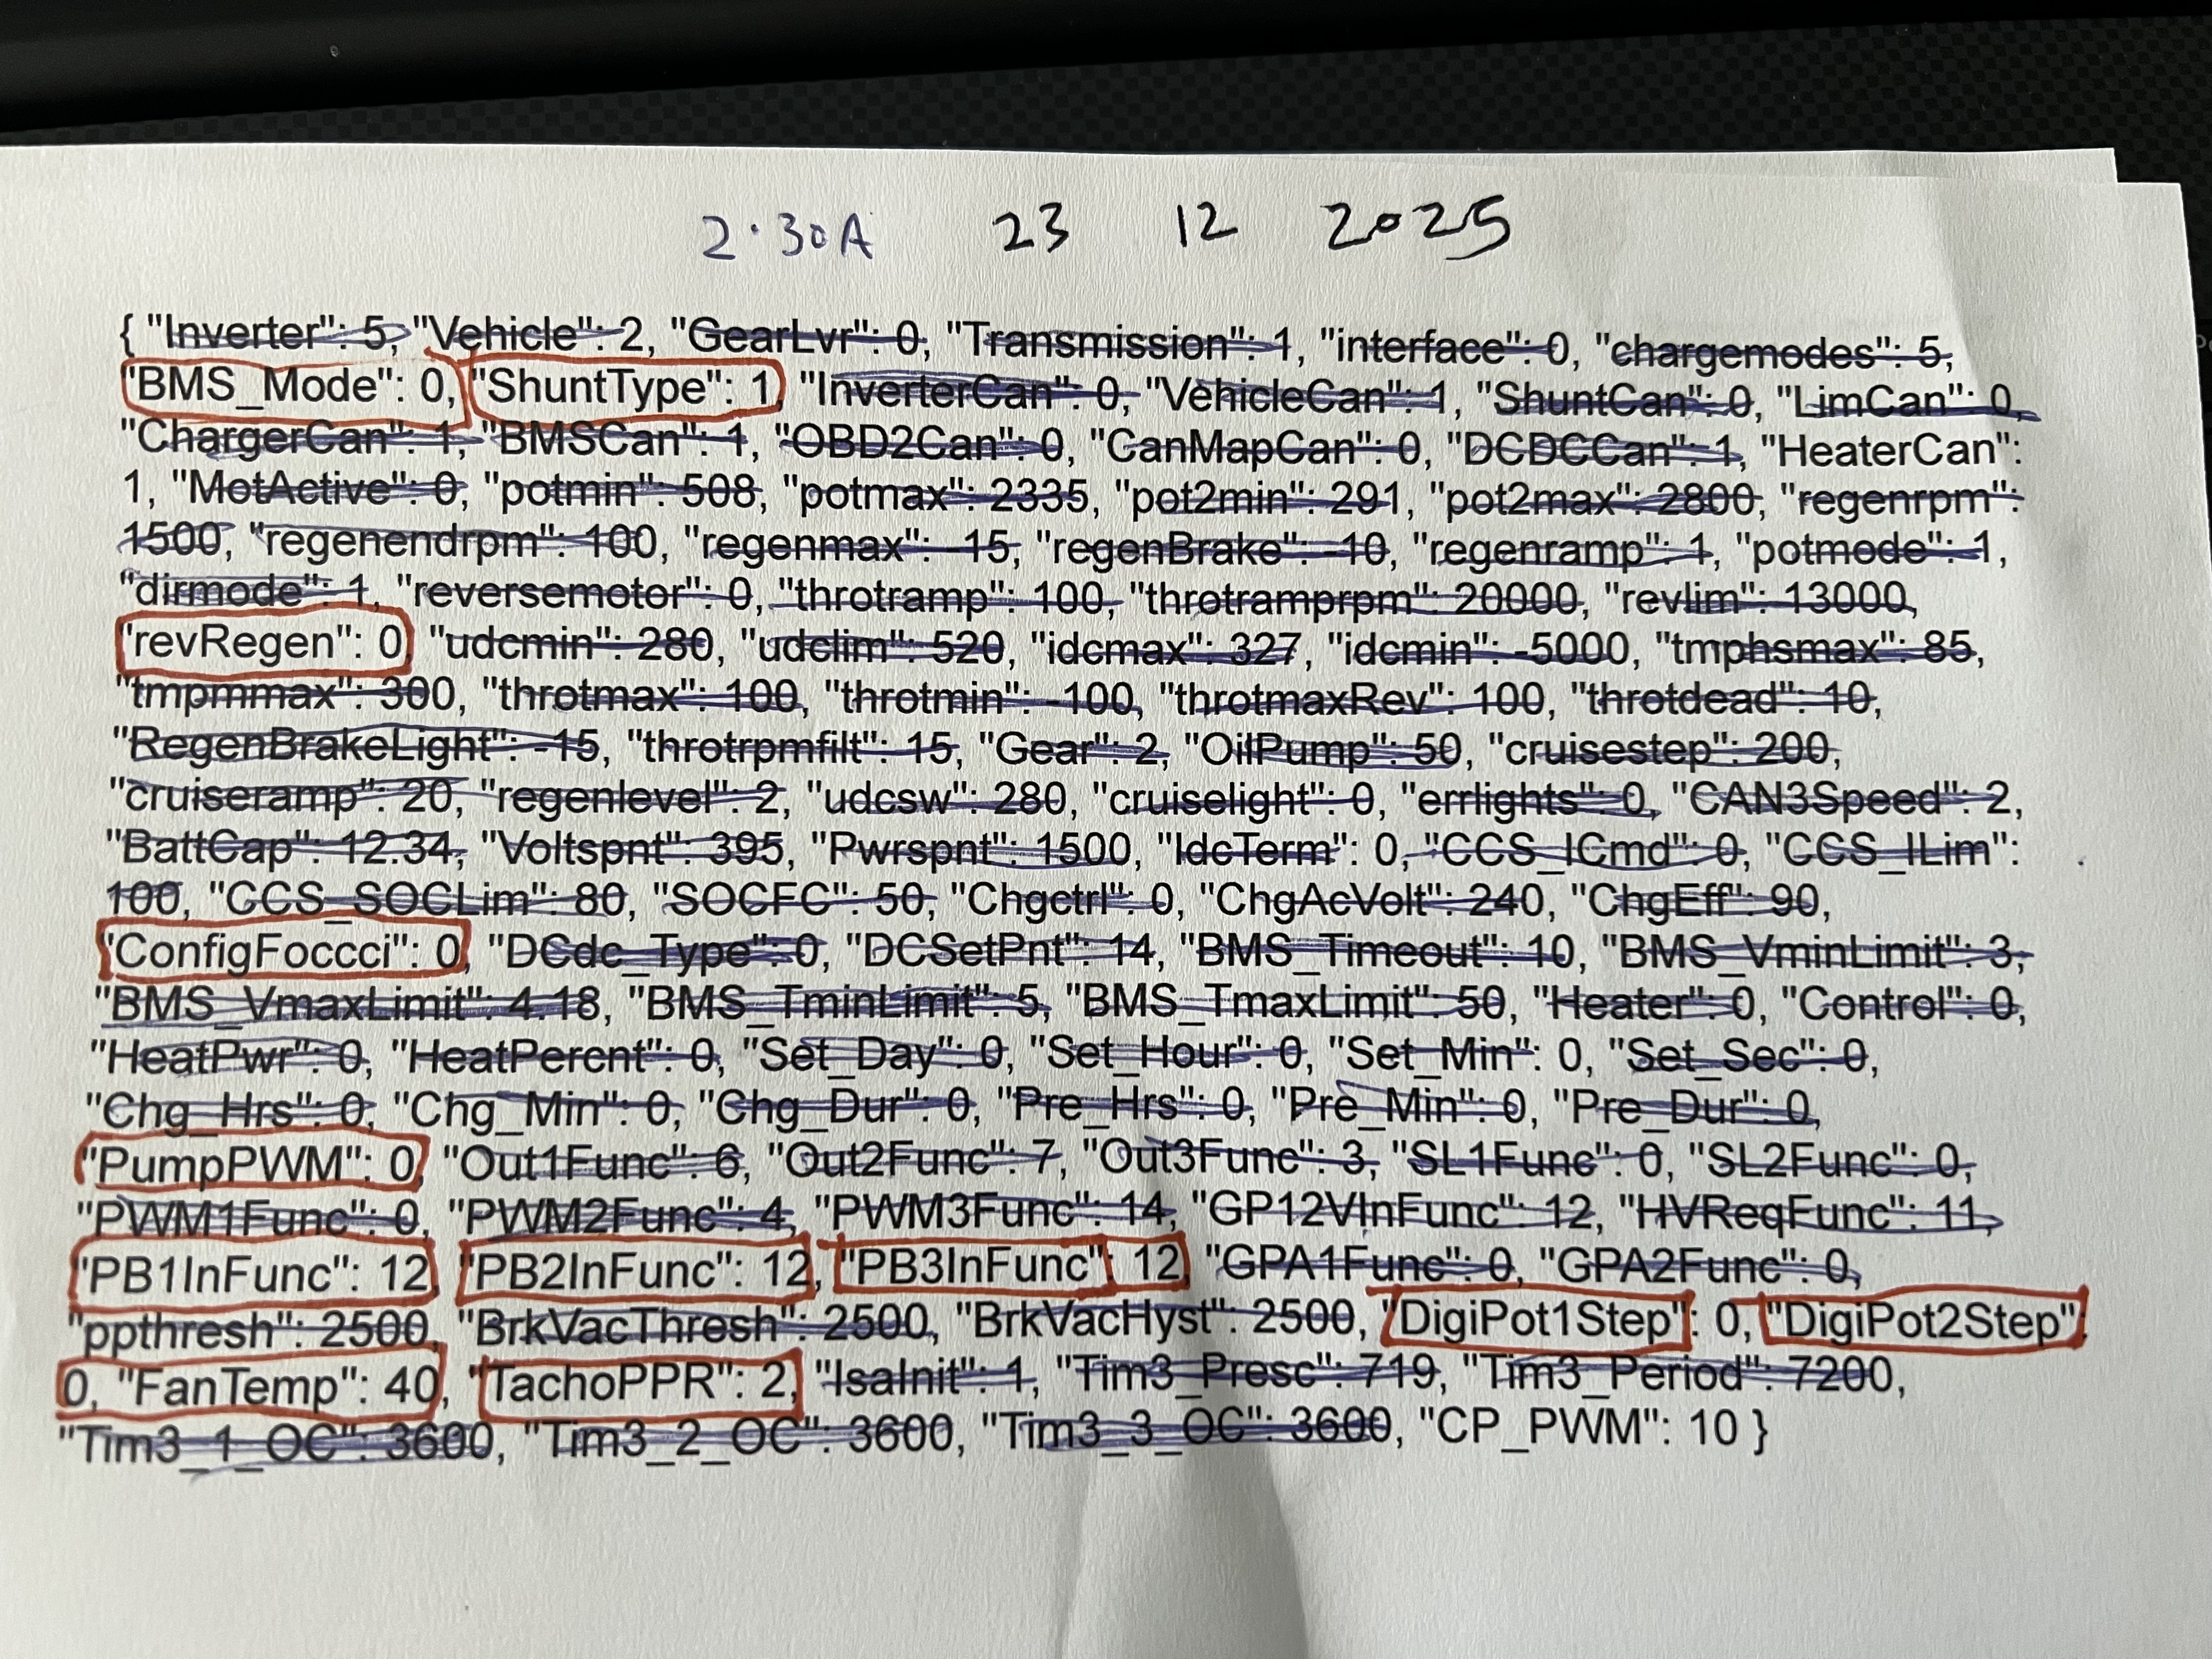 2·30A 23 12 2025
{ "Inverter": 5, "Vehicle": 2, "GearLvr": 0, "Transmission": 1, "interface": 0, "chargemodes": 5,
"BMS_Mode": 0, "ShuntType": 1, "InverterCan": 0, "VehicleCan": 1, "ShuntCan": 0, "LimCan": 0,
"ChargerCan": 1, "BMSCan": 1, "OBD2Can": 0, "CanMapCan": 0, "DCDCCan": 1, "HeaterCan":
1, "MotActive": 0, "potmin": 508, "potmax": 2335, "pot2min": 291, "pot2max": 2800, "regenrpm":
1500, "regenendrpm": 100, "regenmax": -15, "regenBrake": -10, "regenramp": 1, "potmode": 1,
"dirmode": 1, "reversemotor": 0, "throtramp": 100, "throtramprpm": 20000, "revlim": 13000,
"revRegen": 0, "udcmin": 280, "udclim": 520, "idcmax": 327, "idcmin": -5000, "tmphsmax": 85,
"tmpmmax": 300, "throtmax": 100, "throtmin": -100, "throtmaxRev": 100, "throtdead": 10,
"RegenBrakeLight": -15, "throtrpmfilt": 15, "Gear": 2, "OilPump": 50, "cruisestep": 200,
"cruiseramp": 20, "regenlevel": 2, "udcsw": 280, "cruiselight": 0, "errlights": 0, "CAN3Speed": 2,
"BattCap": 12.34, "Voltspnt": 395, "Pwrspnt": 1500, "IdcTerm": 0, "CCS_ICmd": 0, "CCS_ILim":
100, "CCS_SOCLim": 80, "SOCFC": 50, "Chgctrl": 0, "ChgAcVolt": 240, "ChgEff": 90,
"ConfigFoccci": 0, "DCdc_Type": 0, "DCSetPnt": 14, "BMS_Timeout": 10, "BMS_VminLimit": 3,
"BMS_VmaxLimit": 4.18, "BMS_TminLimit": 5, "BMS_TmaxLimit": 50, "Heater": 0, "Control": 0,
"HeatPwr": 0, "HeatPercnt": 0, "Set_Day": 0, "Set_Hour": 0, "Set_Min": 0, "Set_Sec": 0,
"Chg_Hrs": 0, "Chg_Min": 0, "Chg_Dur": 0, "Pre_Hrs": 0, "Pre_Min": 0, "Pre_Dur": 0,
"PumpPWM": 0, "Out1Func": 6, "Out2Func": 7, "Out3Func": 3, "SL1Func": 0, "SL2Func": 0,
"PWM1Func": 0, "PWM2Func": 4, "PWM3Func": 14, "GP12VInFunc": 12, "HVReqFunc": 11,
"PB1InFunc": 12, "PB2InFunc": 12, "PB3InFunc": 12, "GPA1Func": 0, "GPA2Func": 0,
"ppthresh": 2500, "BrkVacThresh": 2500, "BrkVacHyst": 2500, "DigiPot1Step": 0, "DigiPot2Step":
0, "FanTemp": 40, "TachoPPR": 2, "IsaInit": 1, "Tim3_Presc": 719, "Tim3_Period": 7200,
"Tim3_1_OC": 3600, "Tim3_2_OC": 3600, "Tim3_3_OC": 3600, "CP_PWM": 10 }